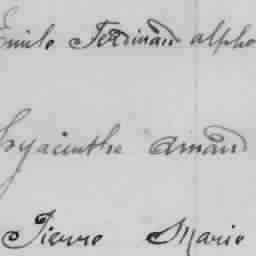 Emile Ferdinand alpho
hyacinthe Amand
Pierre Marie